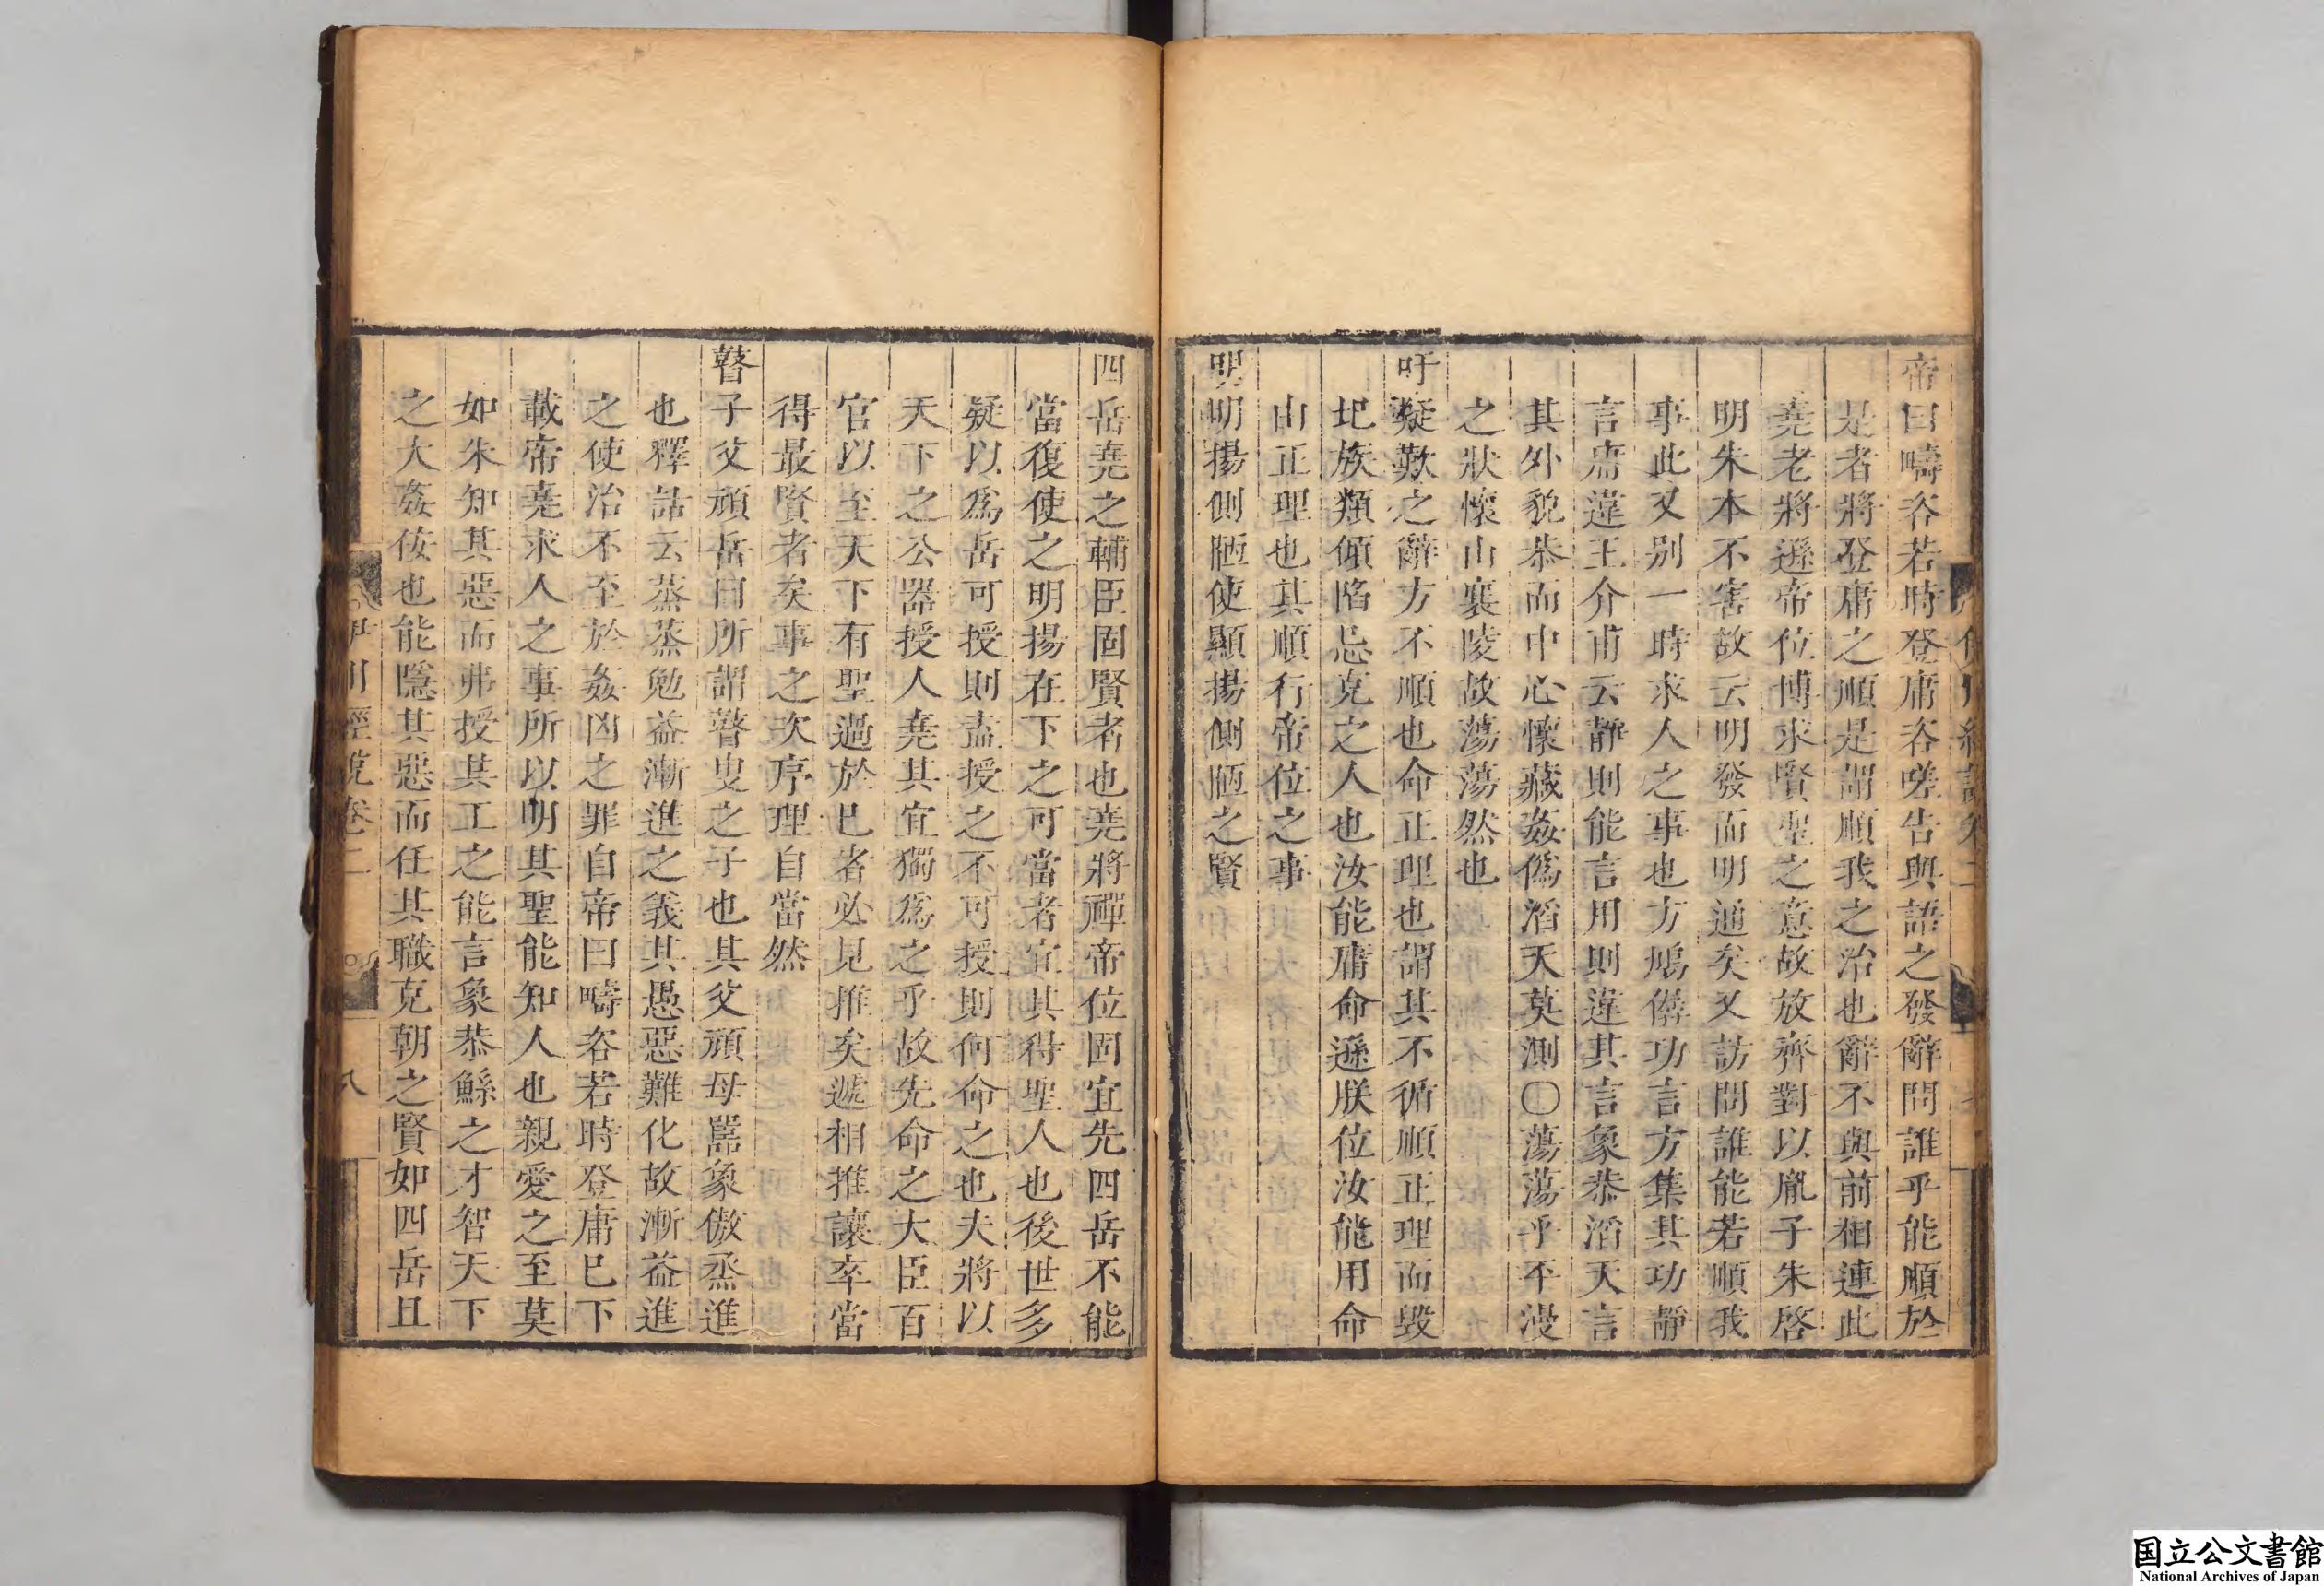 帝曰疇咨若時登庸咨嗟告與語之發辭問誰乎能順於
是者將登庸之順是謂順我之治也辭不與前相連此
堯老將遜帝位博求賢聖之意故放齊對以胤子朱啓
明朱本不害故云明發而明通矣又訪問誰能若順我
事此又別一時求人之事也方鳩僝功言方集其功靜
言庸違王介甫云靜則能言用則違其言象恭滔天言
其外貌恭而中心懷藏姦僞滔天莫測〇蕩蕩乎平漫
之狀懷山襄陵故蕩蕩然也
吁疑歎之辭方不順也命正理也謂其不循順正理而毀
圯族類傾陷忌克之人也汝能庸命遜朕位汝能用命
由正理也其順行帝位之事
明明揚側陋使顯揚側陋之賢
四岳堯之輔臣固賢者也堯將禪帝位固宜先四岳不能
當復使之明揚在下之可當者宜其得聖人也後世多
疑以爲岳可授則盍授之不可授則何命之也夫將以
天下之公器授人堯其宜獨爲之乎故先命之大臣百
官以至天下有聖過於已者必見推矣遞相推讓卒當
得最賢者矣事之次序理自當然
瞽子父頑岳曰所謂瞽叟之子也其父頑母嚚象傲烝進
也釋詁云蒸蒸勉益漸進之義其愚惡難化故漸益進
之使治不至於姦凶之罪自帝曰疇咨若時登庸已下
載帝堯求人之事所以明其聖能知人也親愛之至莫
如朱知其惡而弗授其工之能言象恭鯀之才智天下
之大姦佞也能隱其惡而任其職克朝之賢如四岳且
伊川經說卷二
八
国立公文書館
National Archives of Japan